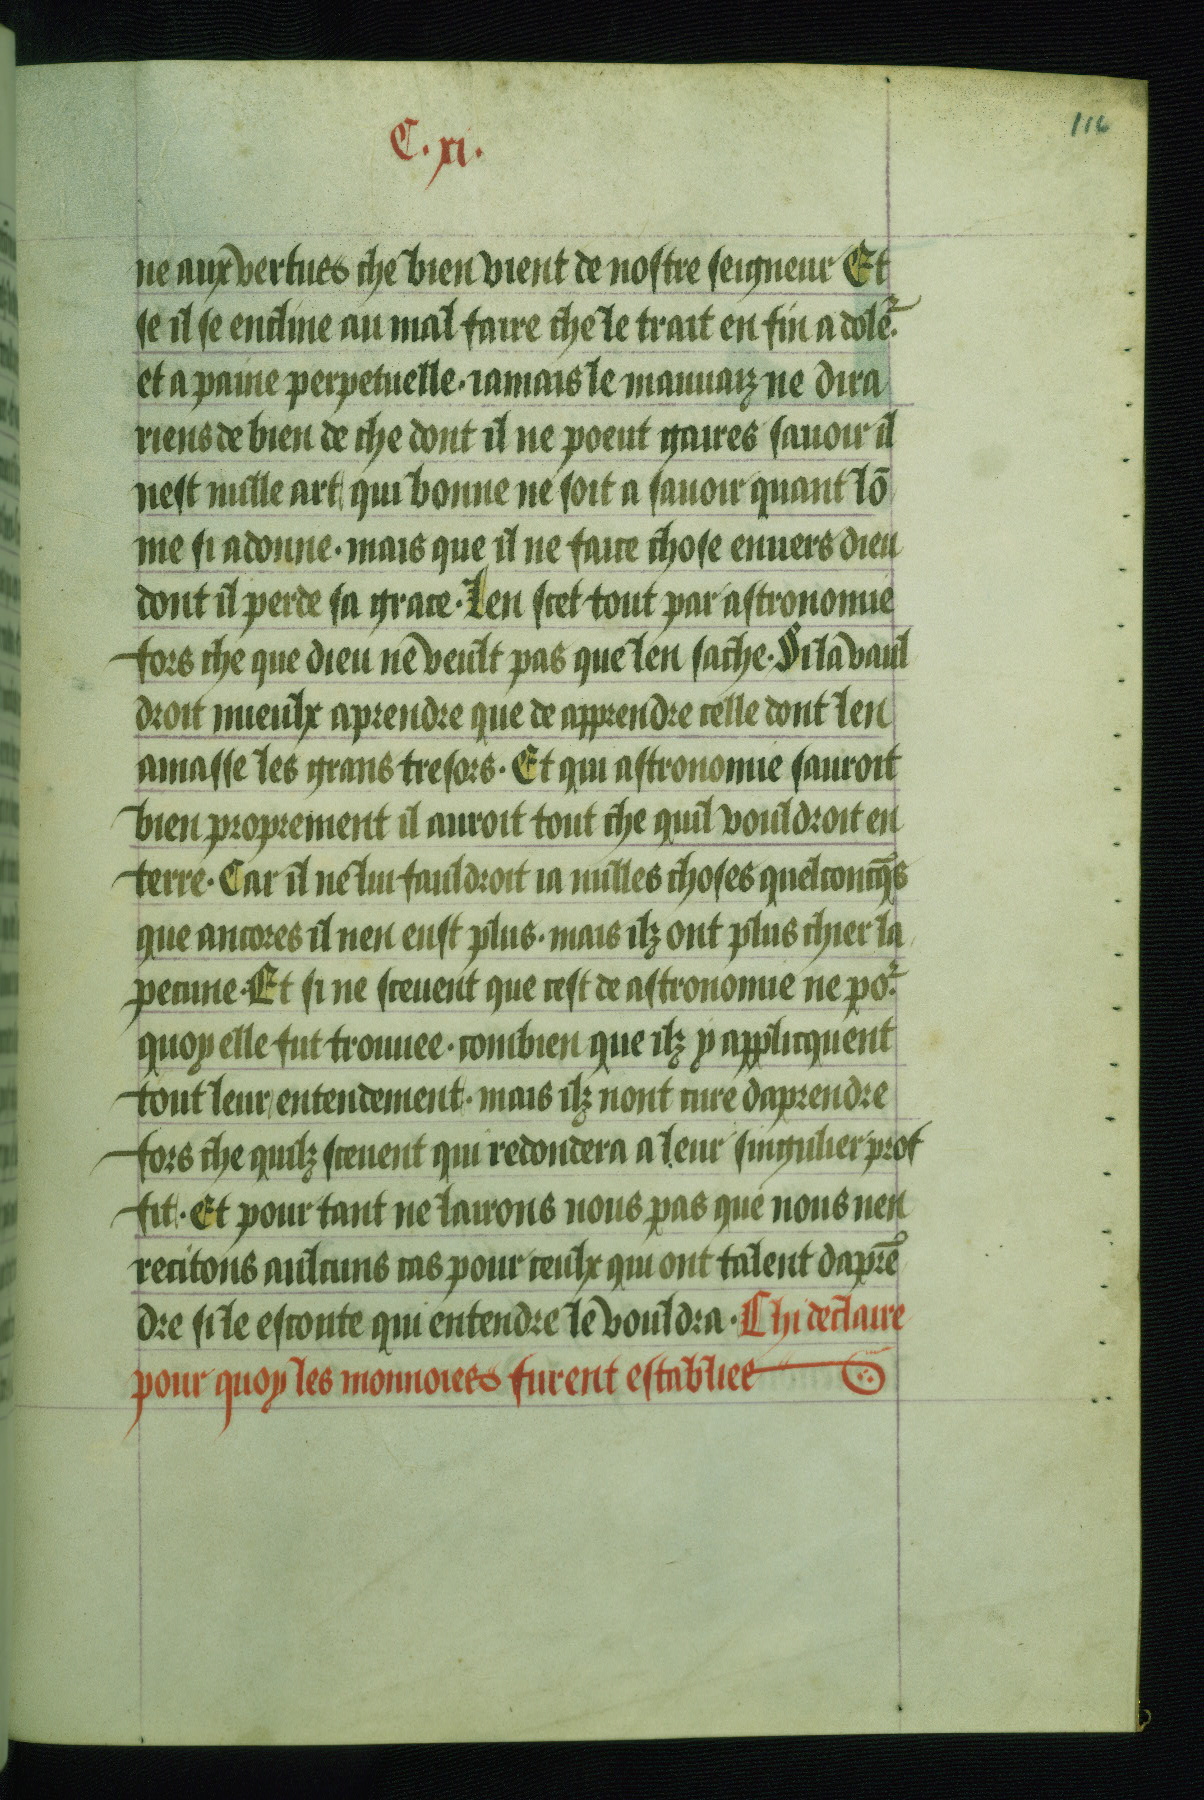 116
C. xi.
ne aux vertues che bien vient de nostre seigneur Et
se il se encline au mal faire che le trait en fin a dolẽ.
et a paine perpetuelle. iamais le mauuaiz ne dira
riens de bien de che dont il ne poeut gaires sauoir il
nest nulle art qui bonne ne soit a sauoir quant lõ
me si adonne. mais que il ne face chose enuers dieu
dont il perde sa grace. Len scet tout par astronomie
fors che que dieu ne veult pas que len sache. Si la vaul
droit mieulx aprendre que de apprendre celle dont len
amasse les grans tresors. Et qui astronomie sauroit
bien proprement il auroit tout che quil vouldroit en
terre. Car il ne lui fauldroit ia nulles choses quelconq̃s
que ancores il nen eust plus. mais ilz ont plus chier la
pecune. Et si ne sceuent que cest de astronomie ne poᷣ
quoy elle fut trouuee. combien que ilz y applicquent
tout leur entendement. mais ilz nont cure daprendre
fors che quilz sceuent qui redondera a leur singulier prof
fit. Et pour tant ne lairons nous pas que nous nen
recitons aulcuns cas pour ceulx qui ont talent daprẽ
dre si le escoute qui entendre le vouldra. Chi declaire
pour quoy les monnoies furent establies